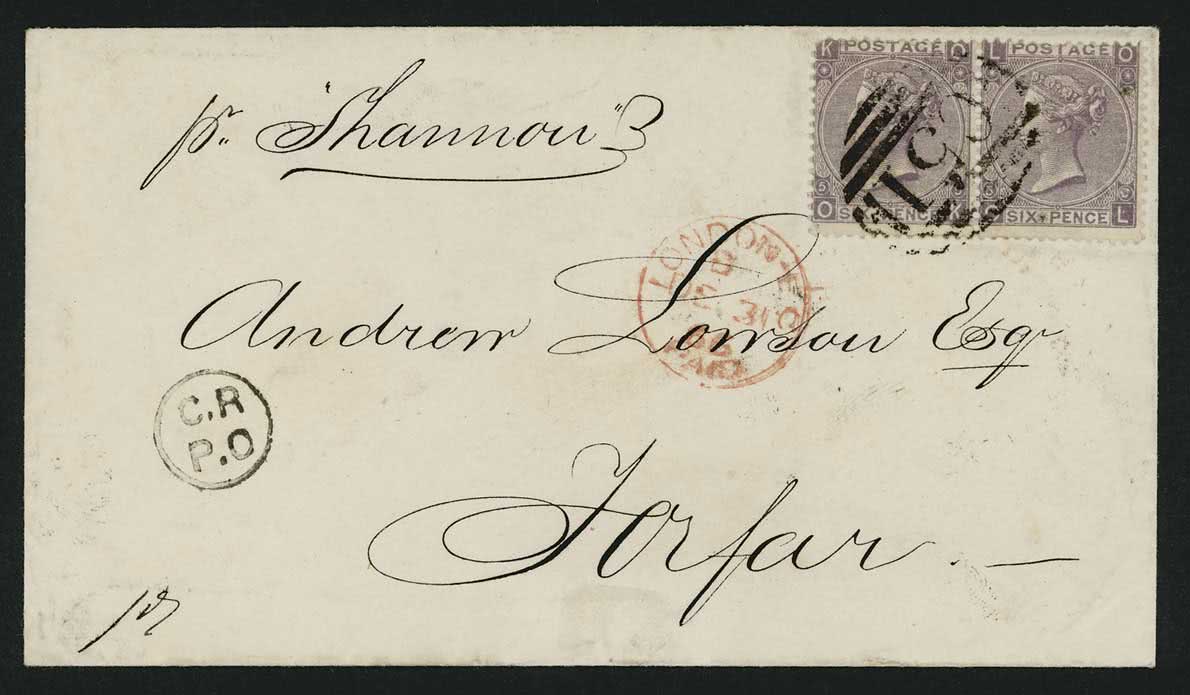 K POSTAGE O L POSTAGE O
pr. "Shannon"
C51
O SIX PENCE K O SIX PENCE L
LONDON-E.C
31
PAID
Andrew Lowson Esqr
C.R
P.O
Forfar